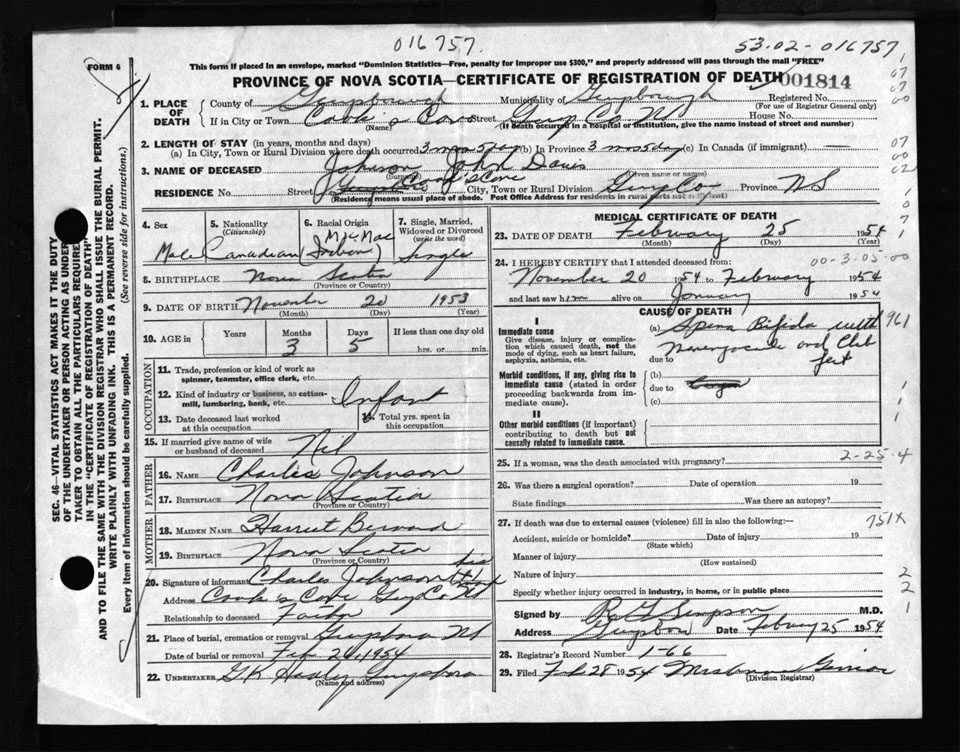 016757.
53.02-016757
FORM 6
This form if placed in an envelope, marked "Dominion Statistics—Free, penalty for improper use $300," and properly addressed will pass through the mail "FREE"
PROVINCE OF NOVA SCOTIA—CERTIFICATE OF REGISTRATION OF DEATH
001814
1. PLACE OF DEATH
County of Municipality of Registered No.
(For use of Registrar General only)
If in City or Town Cook's Cove Street Guys Co NS House No.
(Name) (If death occurred in a hospital or institution, give the name instead of street and number)
2. LENGTH OF STAY (in years, months and days)
(a) In City, Town or Rural Division where death occurred 3 mos 5 day (b) In Province 3 mos 5 day (c) In Canada (if immigrant) —
3. NAME OF DECEASED Johnson John Davis
(Given name or names)
RESIDENCE No. Street City, Town or Rural Division Guys Co Province NS
(Residence means usual place of abode. Post Office Address for residents in rural parts not sufficient)
4. Sex
Male
5. Nationality
(Citizenship)
Canadian
6. Racial Origin
Mic Mac
(Indian)
7. Single, Married, Widowed or Divorced
(write the word)
Single
8. BIRTHPLACE Nova Scotia
(Province or Country)
9. DATE OF BIRTH November 20 1953
(Month) (Day) (Year)
10. AGE in Years Months Days If less than one day old
3 5 hrs. or min.
OCCUPATION
11. Trade, profession or kind of work as spinner, teamster, office clerk, etc.
12. Kind of industry or business, as cotton-mill, lumbering, bank, etc. Infant
13. Date deceased last worked at this occupation
14. Total yrs. spent in this occupation
15. If married give name of wife or husband of deceased Nil
FATHER
16. NAME Charles Johnson
17. BIRTHPLACE Nova Scotia
(Province or Country)
MOTHER
18. MAIDEN NAME Harriet Bernard
19. BIRTHPLACE Nova Scotia
(Province or Country)
20. Signature of informant Charles Johnson his
Address Cook's Cove Guy Co NS
Relationship to deceased Father
21. Place of burial, cremation or removal Guysboro NS
Date of burial or removal Feb 26, 1954
22. UNDERTAKER Guysboro
(Name and address)
MEDICAL CERTIFICATE OF DEATH
23. DATE OF DEATH February 25 1954
(Month) (Day) (Year)
24. I HEREBY CERTIFY that I attended deceased from:
00-3-05-00
November 20 1954 to February 1954
and last saw him alive on January 1954
CAUSE OF DEATH
I
Immediate cause
Give disease, injury or complication which caused death, not the mode of dying, such as heart failure, asphyxia, asthenia, etc.
(a) Spina Bifida with 961
due to and Club feet
Morbid conditions, if any, giving rise to immediate cause (stated in order proceeding backwards from immediate cause).
(b)
due to
(c)
II
Other morbid conditions (if important) contributing to death but not causally related to immediate cause.
25. If a woman, was the death associated with pregnancy? 2-25-4
26. Was there a surgical operation? Date of operation 19
State findings Was there an autopsy?
27. If death was due to external causes (violence) fill in also the following:— 751X
Accident, suicide or homicide? Date of injury 19
(State which)
Manner of injury
(How sustained)
Nature of injury
Specify whether injury occurred in industry, in home, or in public place
Signed by Simpson M.D.
Address Date February 25 1954
28. Registrar's Record Number 1-66
29. Filed Feb 28 1954
(Division Registrar)
SEC. 46—VITAL STATISTICS ACT MAKES IT THE DUTY
OF THE UNDERTAKER OR PERSON ACTING AS UNDERTAKER TO OBTAIN ALL THE PARTICULARS REQUIRED
IN THE "CERTIFICATE OF REGISTRATION OF DEATH"
AND TO FILE THE SAME WITH THE DIVISION REGISTRAR WHO SHALL ISSUE THE BURIAL PERMIT.
WRITE PLAINLY WITH UNFADING INK. THIS IS A PERMANENT RECORD.
Every item of information should be carefully supplied. (See reverse side for instructions.)